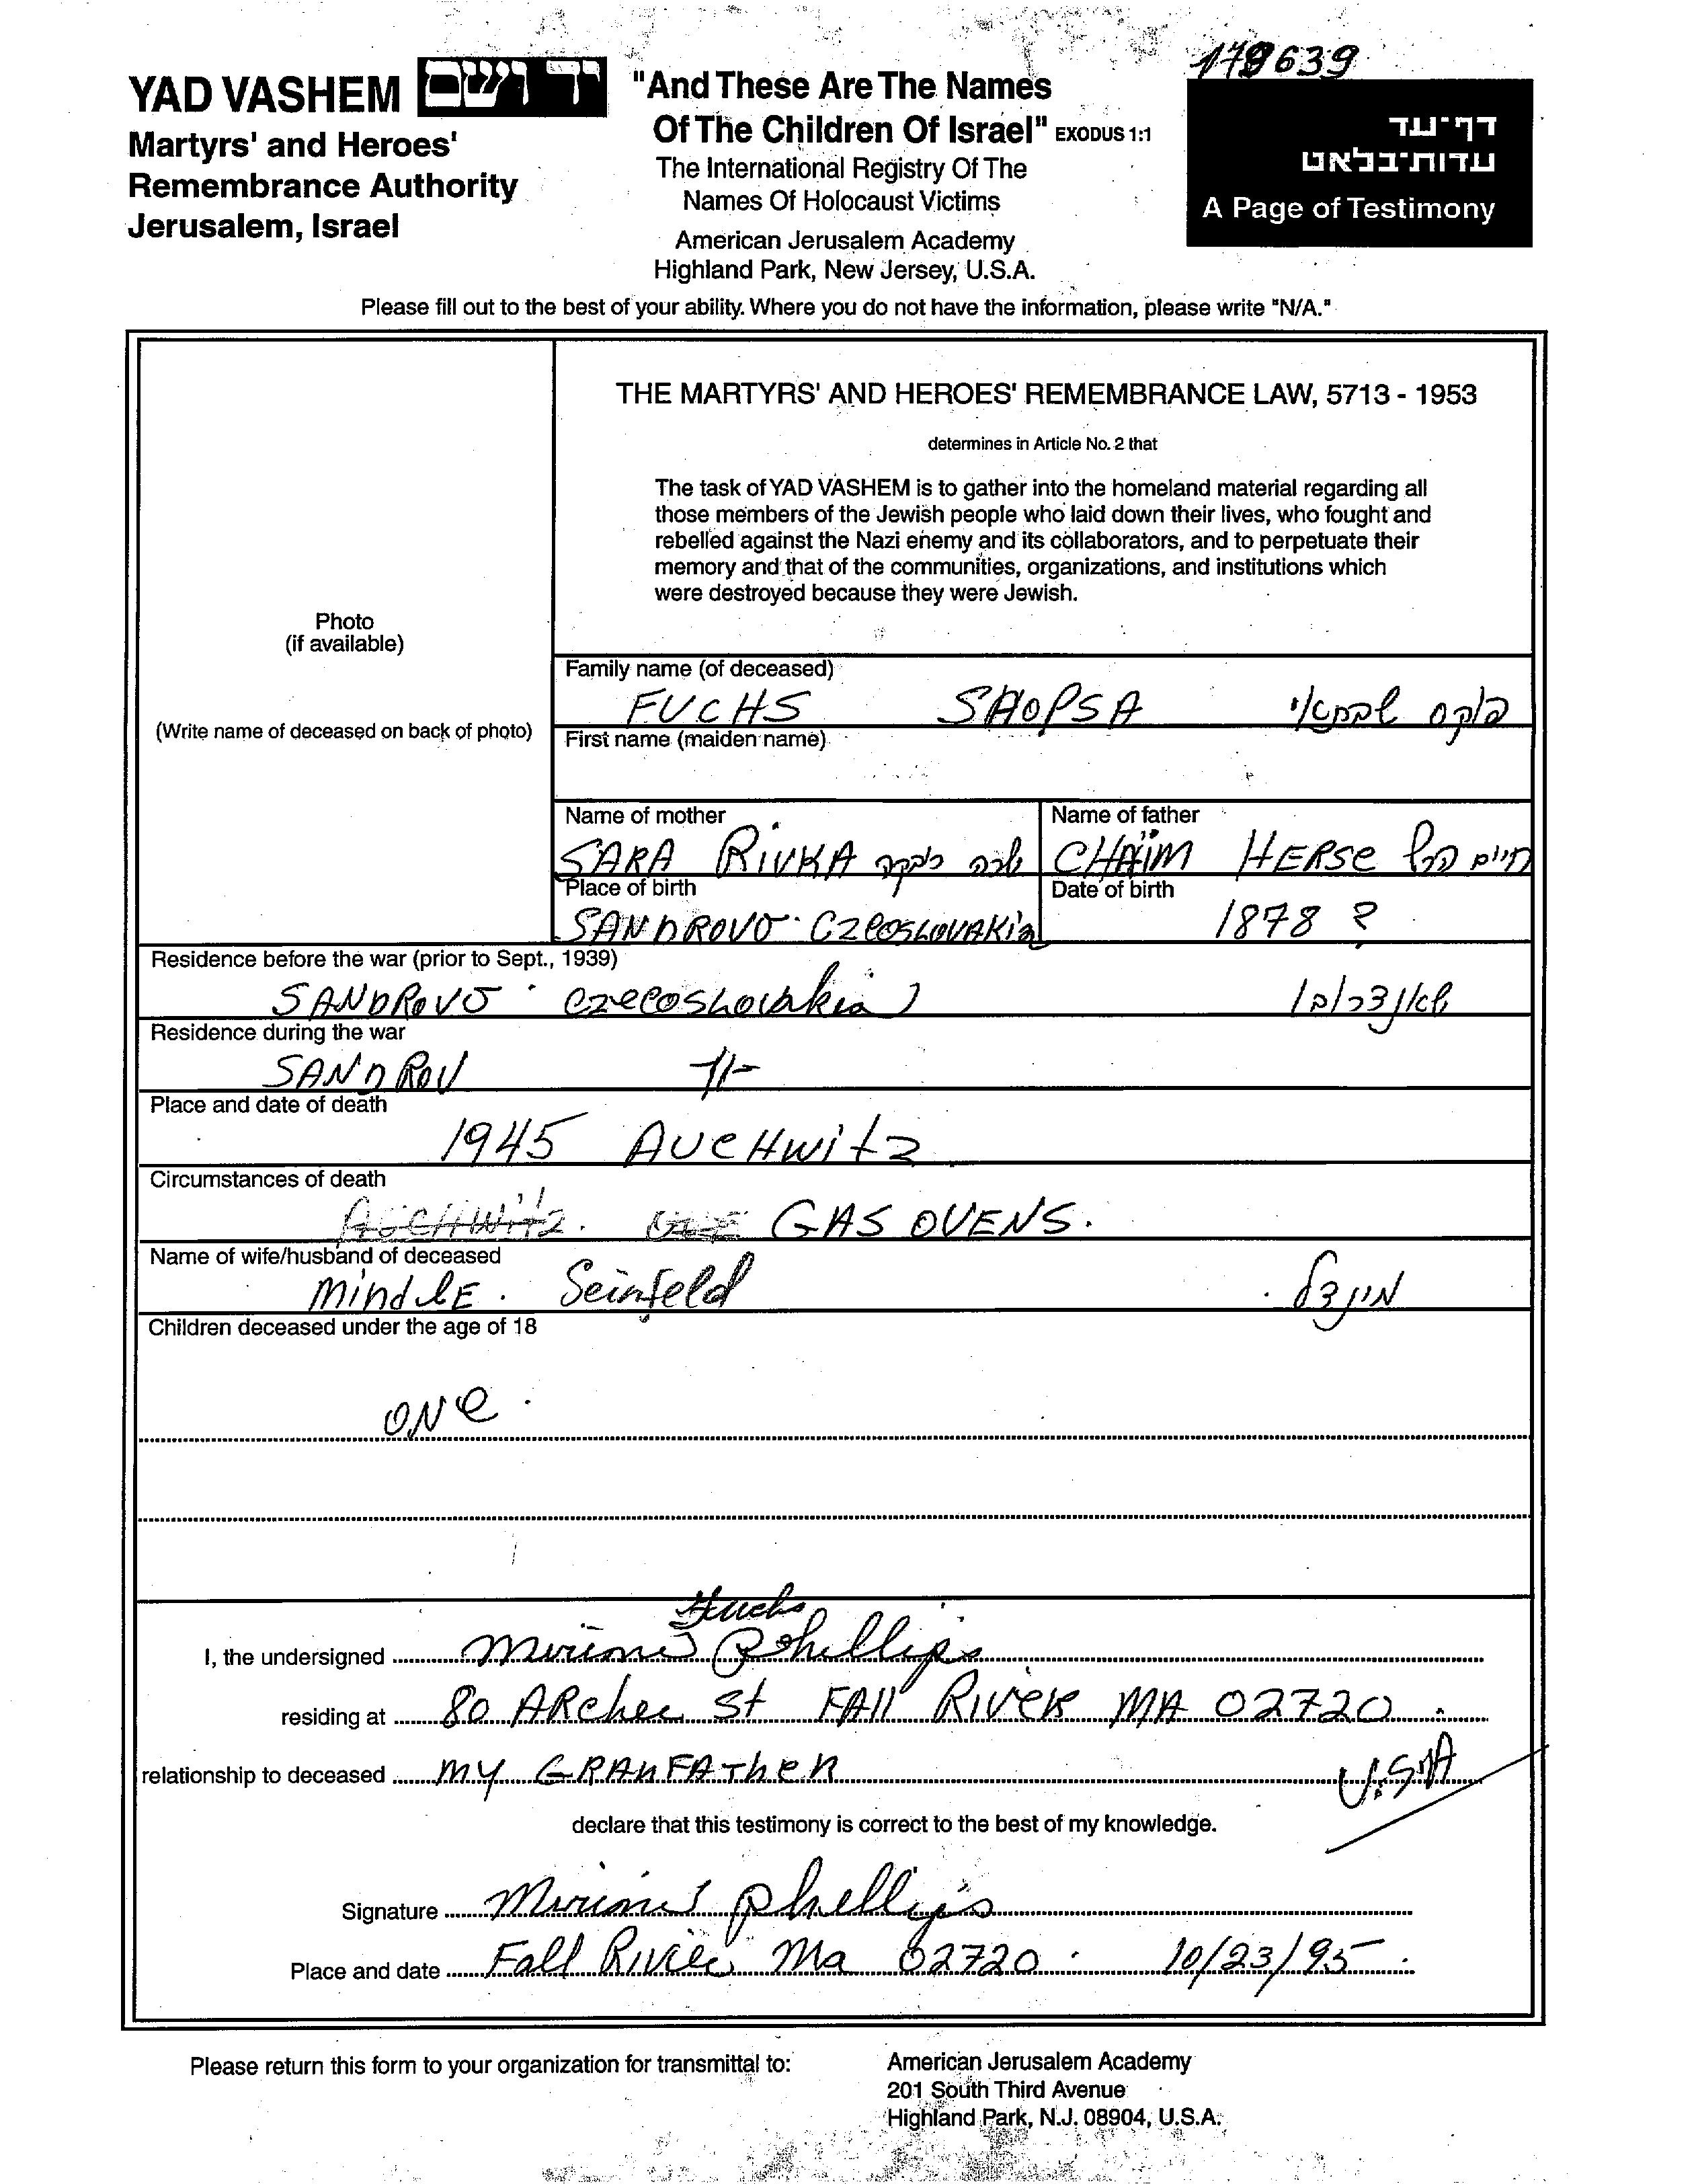 178639
YAD VASHEM יד ושם
Martyrs' and Heroes'
Remembrance Authority
Jerusalem, Israel
"And These Are The Names
Of The Children Of Israel" EXODUS 1:1
The International Registry Of The
Names Of Holocaust Victims
American Jerusalem Academy
Highland Park, New Jersey, U.S.A.
דף-עד
עדות-בלאט
A Page of Testimony
Please fill out to the best of your ability. Where you do not have the information, please write "N/A."
Photo
(if available)
(Write name of deceased on back of photo)
THE MARTYRS' AND HEROES' REMEMBRANCE LAW, 5713 - 1953
determines in Article No. 2 that
The task of YAD VASHEM is to gather into the homeland material regarding all
those members of the Jewish people who laid down their lives, who fought and
rebelled against the Nazi enemy and its collaborators, and to perpetuate their
memory and that of the communities, organizations, and institutions which
were destroyed because they were Jewish.
Family name (of deceased)
FUCHS SHOPSA פוקס
First name (maiden name)
Name of mother
SARA RIVKA שרה רבקה
Name of father
CHAIM HERSE חיים הרל
Place of birth
SANDROVO CZECOSLOVAKia
Date of birth
1878 ?
Residence before the war (prior to Sept., 1939)
SANDROVO CzecosLovakia
Residence during the war
SANDROV -//-
Place and date of death
1945 AUCHWitz
Circumstances of death
AUCHWitz. GAS OVENS.
Name of wife/husband of deceased
MindlE. Seinfeld מינדל.
Children deceased under the age of 18
ONe.
Fuchs
I, the undersigned Miriam Phillips
residing at 80 ARcher St FAll RiveR MA 02720.
relationship to deceased MY GRANFATheR U.S.A
declare that this testimony is correct to the best of my knowledge.
Signature Miriam Phillips
Place and date Fall River Ma 02720. 10/23/95.
Please return this form to your organization for transmittal to:
American Jerusalem Academy
201 South Third Avenue
Highland Park, N.J. 08904, U.S.A.